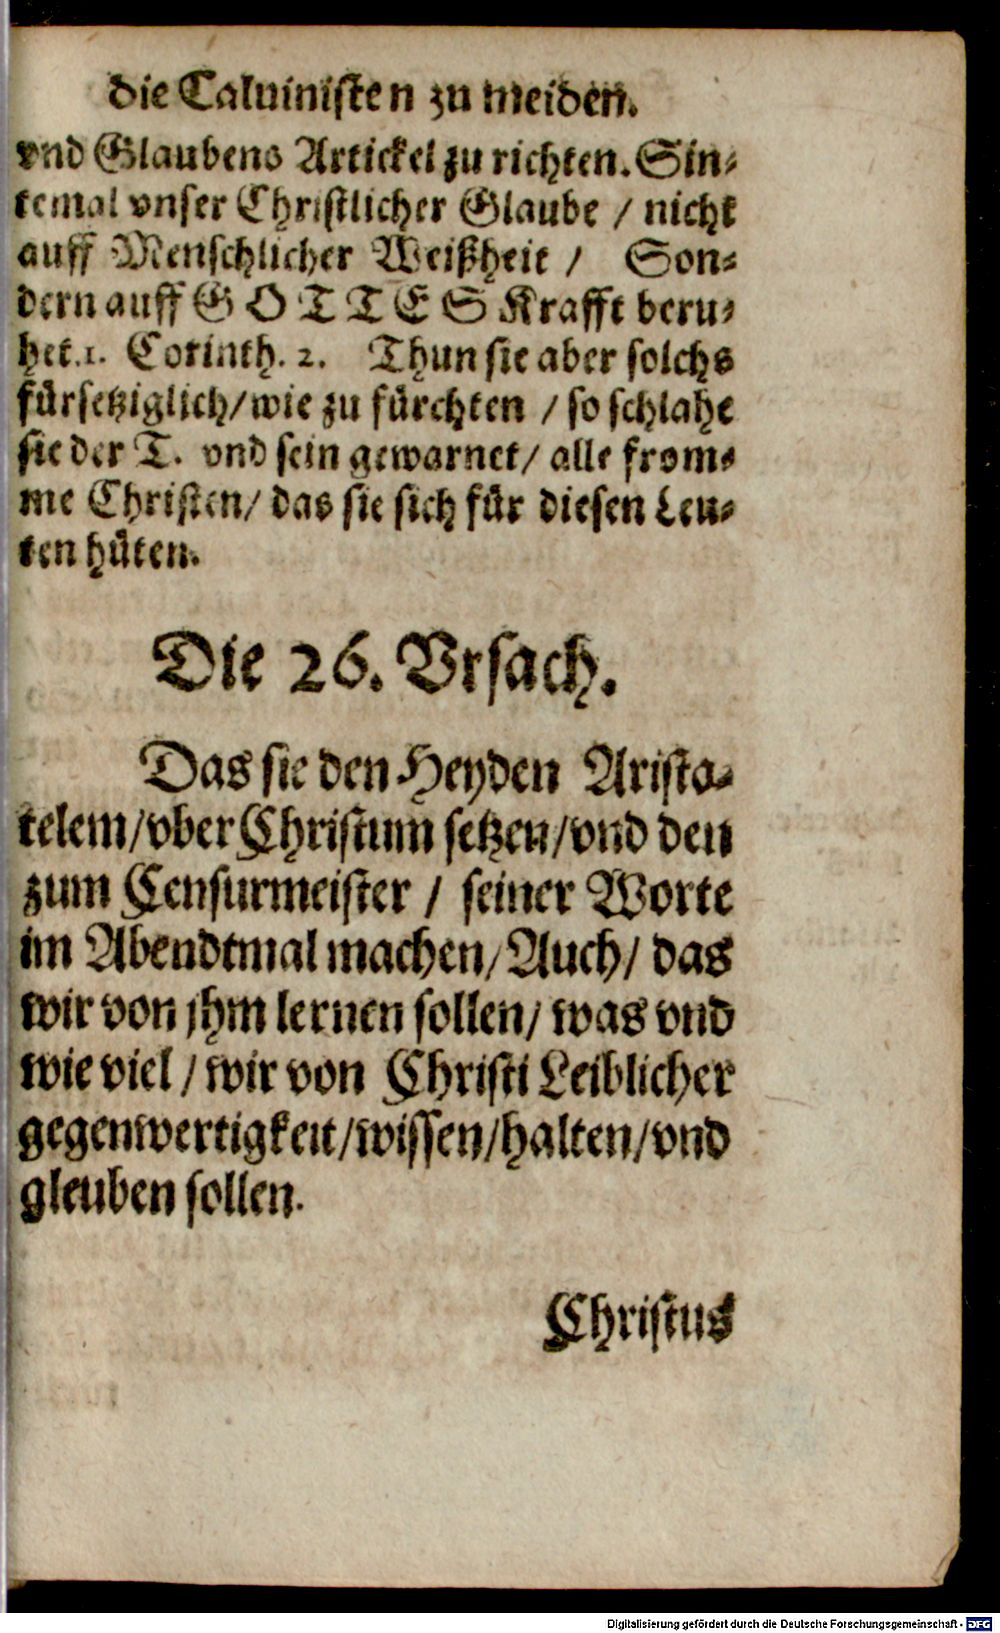 die Caluinisten zu meiden.
vnd Glaubens Artickel zu richten. Sin⸗
temal vnser Christlicher Glaube / nicht
auff Menschlicher Weißheit / Son⸗
dern auff GOTTES Krafft beru⸗
het. 1. Corinth. 2. Thun sie aber solchs
fürsetziglich / wie zu fürchten / so schlahe
sie der T. vnd sein gewarnet / alle from⸗
me Christen / das sie sich für diesen Leu⸗
ten hüten.
Die 26. Vrsach.
Das sie den Heyden Aristo⸗
telem / vber Christum setzen / vnd den
zum Censurmeister / seiner Worte
im Abendtmal machen / Auch / das
wir von jhm lernen sollen / was vnd
wie viel / wir von Christi Leiblicher
gegenwertigkeit / wissen / halten / vnd
gleuben sollen.
Christus
Digitalisierung gefördert durch die Deutsche Forschungsgemeinschaft - DFG